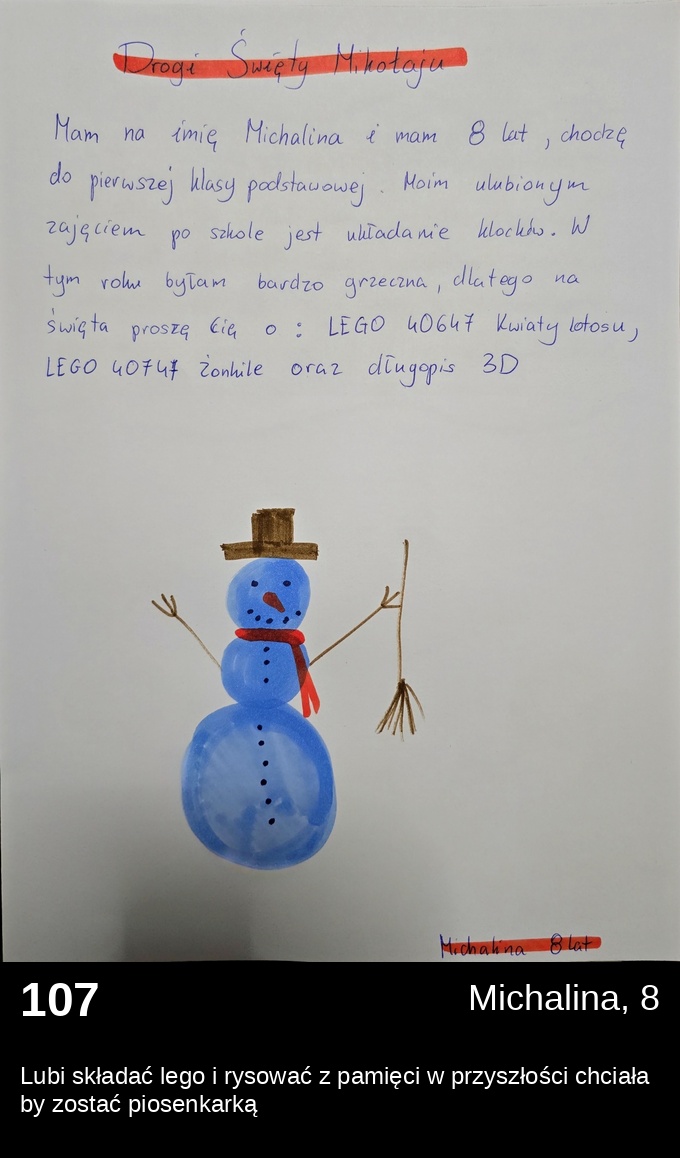 Drogi Święty Mikołaju
Mam na imię Michalina i mam 8 lat, chodzę
do pierwszej klasy podstawowej. Moim ulubionym
zajęciem po szkole jest układanie klocków. W
tym roku byłam bardzo grzeczna, dlatego na
święta proszę Cię o : LEGO 40647 Kwiaty lotosu,
LEGO 40747 Żonkile oraz długopis 3D
Michalina 8 lat
107
Michalina, 8
Lubi składać lego i rysować z pamięci w przyszłości chciała
by zostać piosenkarką